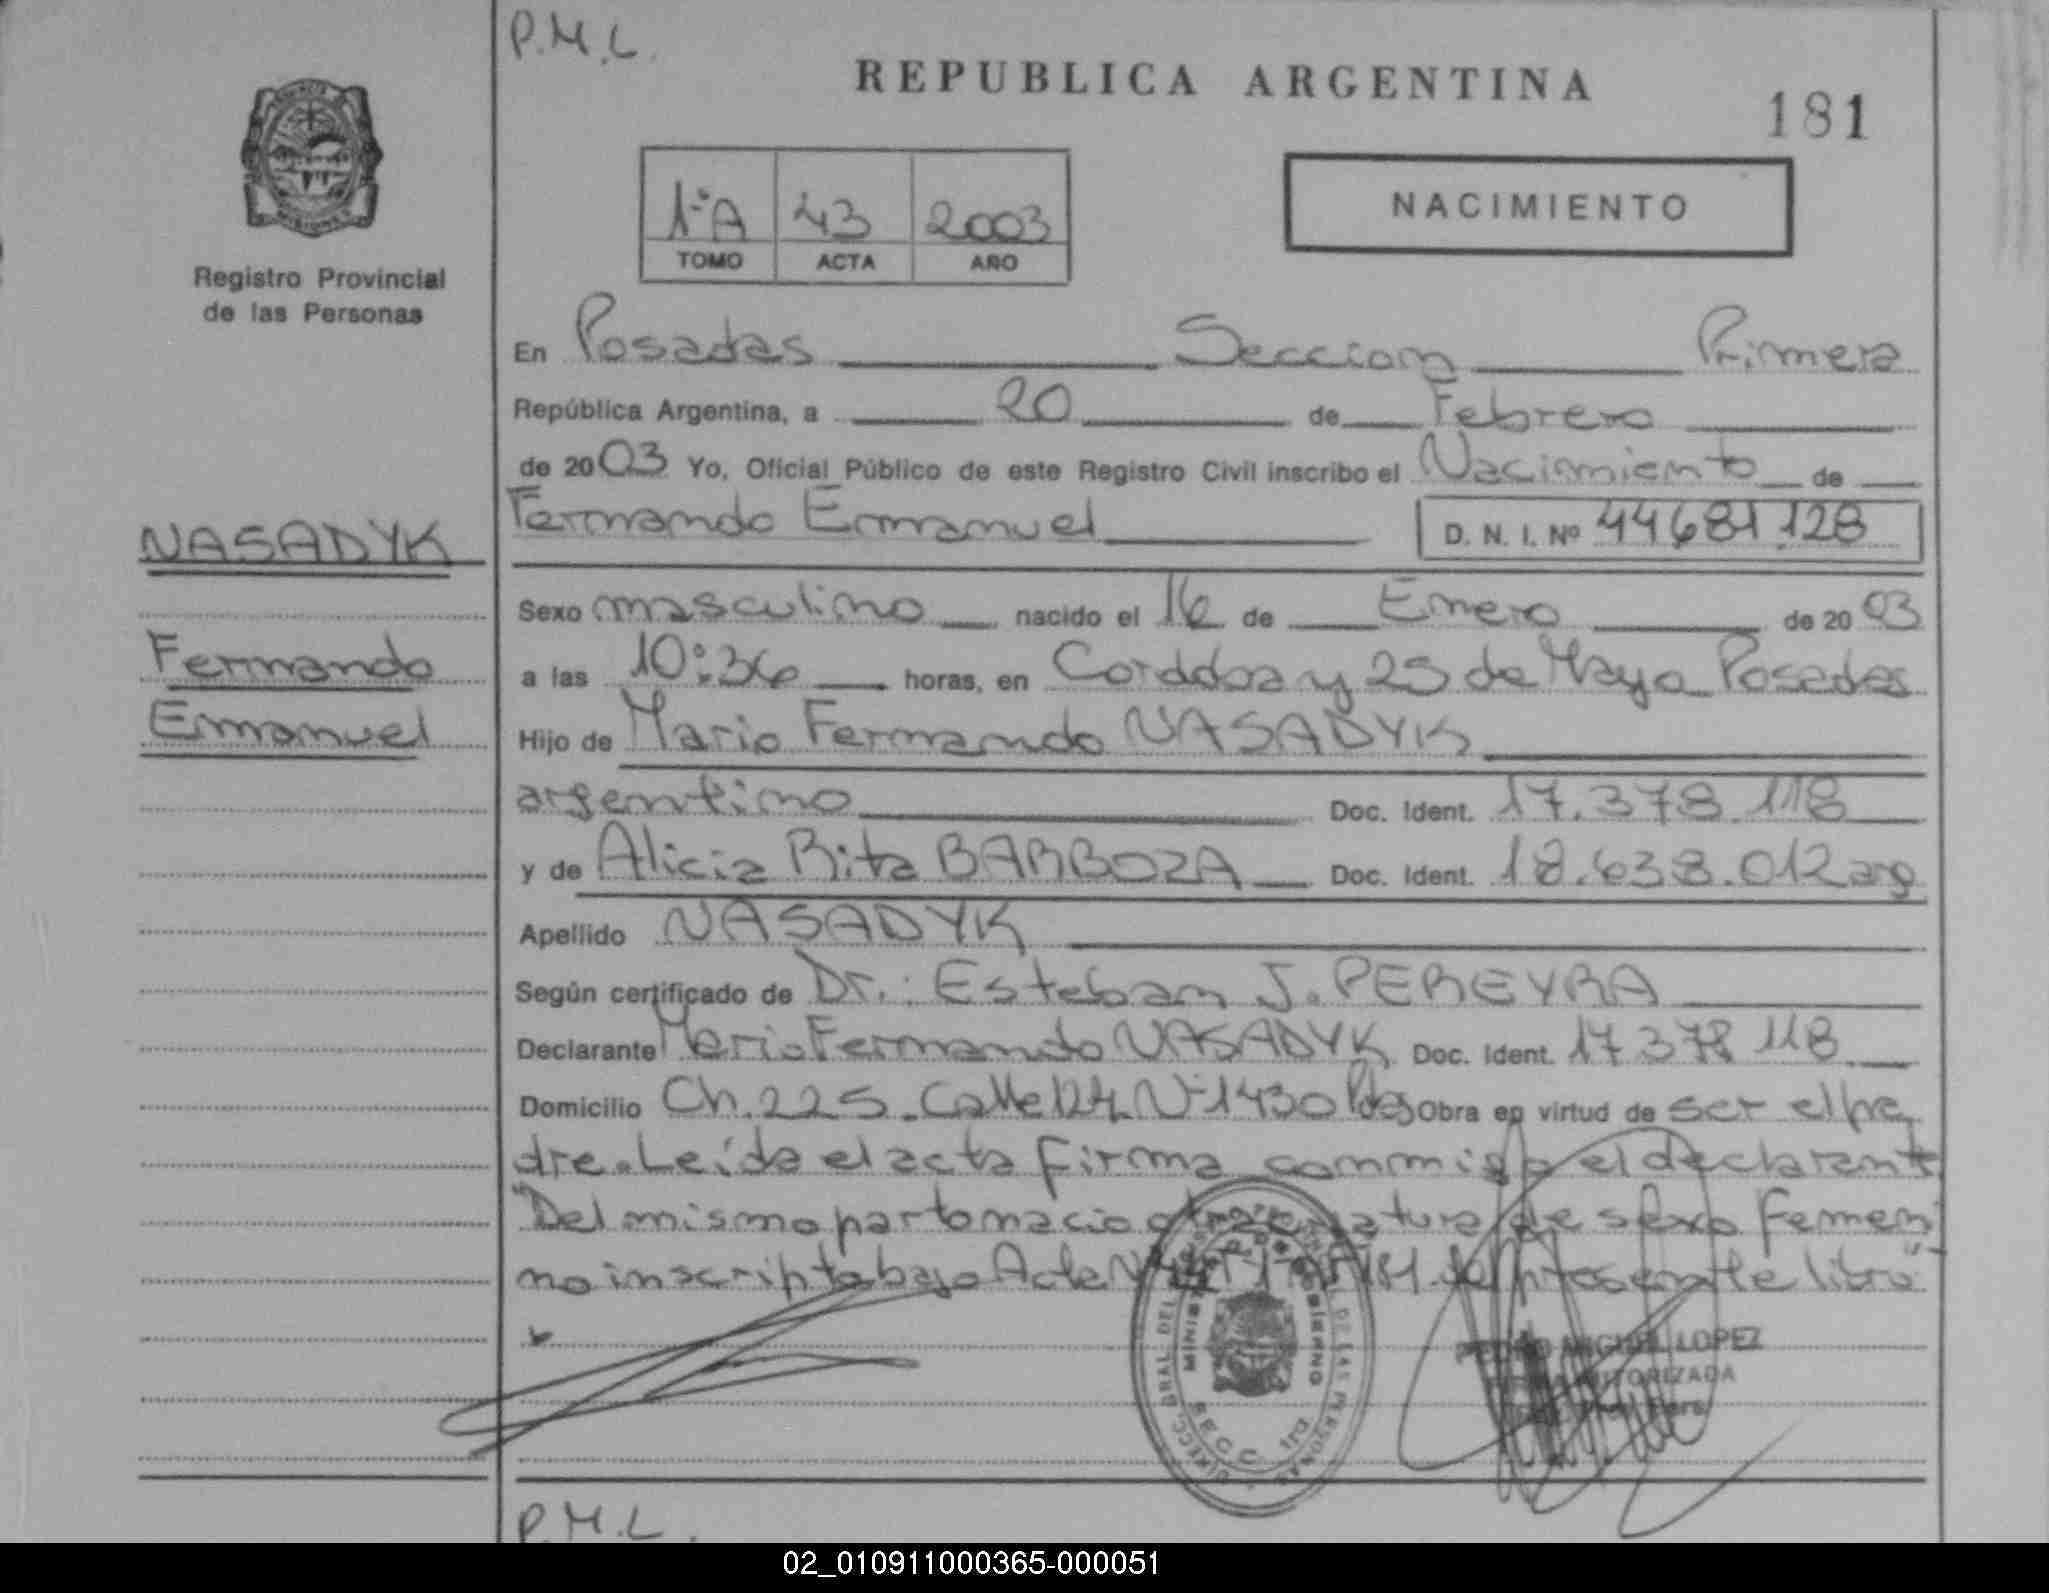 P.M.L.
REPUBLICA ARGENTINA
181
1ºA 43 2003
TOMO ACTA AÑO
NACIMIENTO
Registro Provincial
de las Personas
En Posadas Seccion Primera
República Argentina, a 20 de Febrero
de 2003 Yo, Oficial Público de este Registro Civil inscribo el Nacimiento de
Fernando Emanuel D. N. I. Nº 44681.128
NASADYK
Fernando
Emanuel
Sexo masculino nacido el 16 de Enero de 2003
a las 10:36 horas, en Cordoba y 25 de Mayo Posadas
Hijo de Mario Fernando NASADYK
argentino Doc. Ident. 17.378.118
y de Alicia Rita BARBOZA Doc. Ident. 18.638.012 arg
Apellido NASADYK
Según certificado de Dr.: Esteban J. PEREYRA
Declarante Mario Fernando NASADYK Doc. Ident. 17 378 118
Domicilio Ch. 225. Calle 124 Nº 1430 Pdas Obra en virtud de ser el pa
dre. Leída el acta firma conmigo el declarante
"Del mismo parto nacio otra criatura de sexo femeni
no inscripta bajo Acta Nº del presente libro"
MINISTERIO DE GOBIERNO
SECC. 1ra
PEDRO MIGUEL LOPEZ
FIRMA AUTORIZADA
P.M.L.
02_010911000365-000051